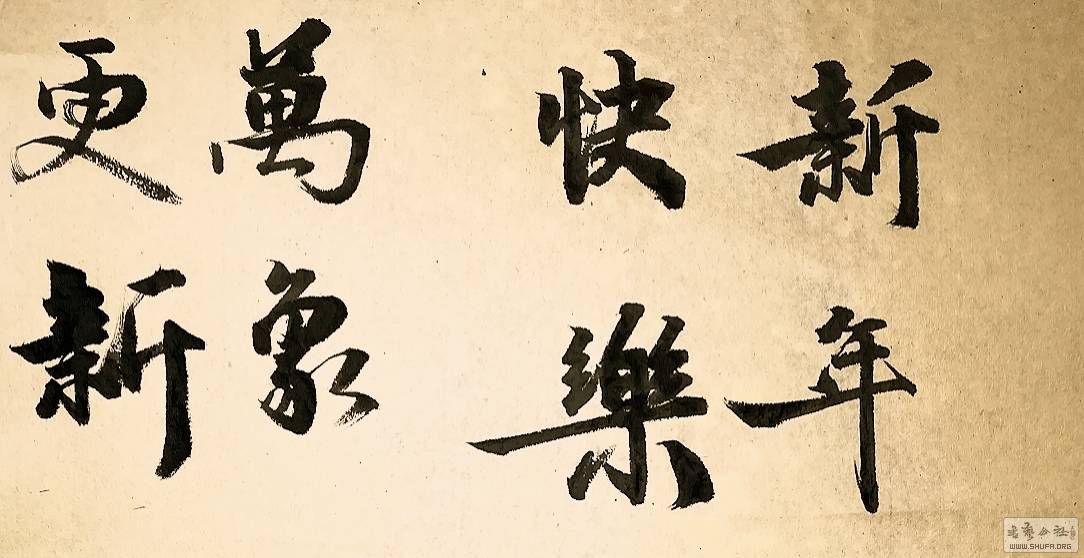 新年
快樂
萬象
更新
WWW.SHUFA.ORG